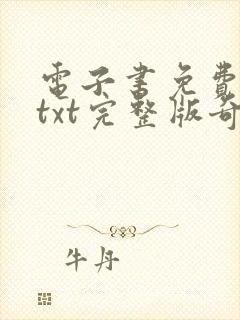 電子書免費
txt完整版奇
牛丹